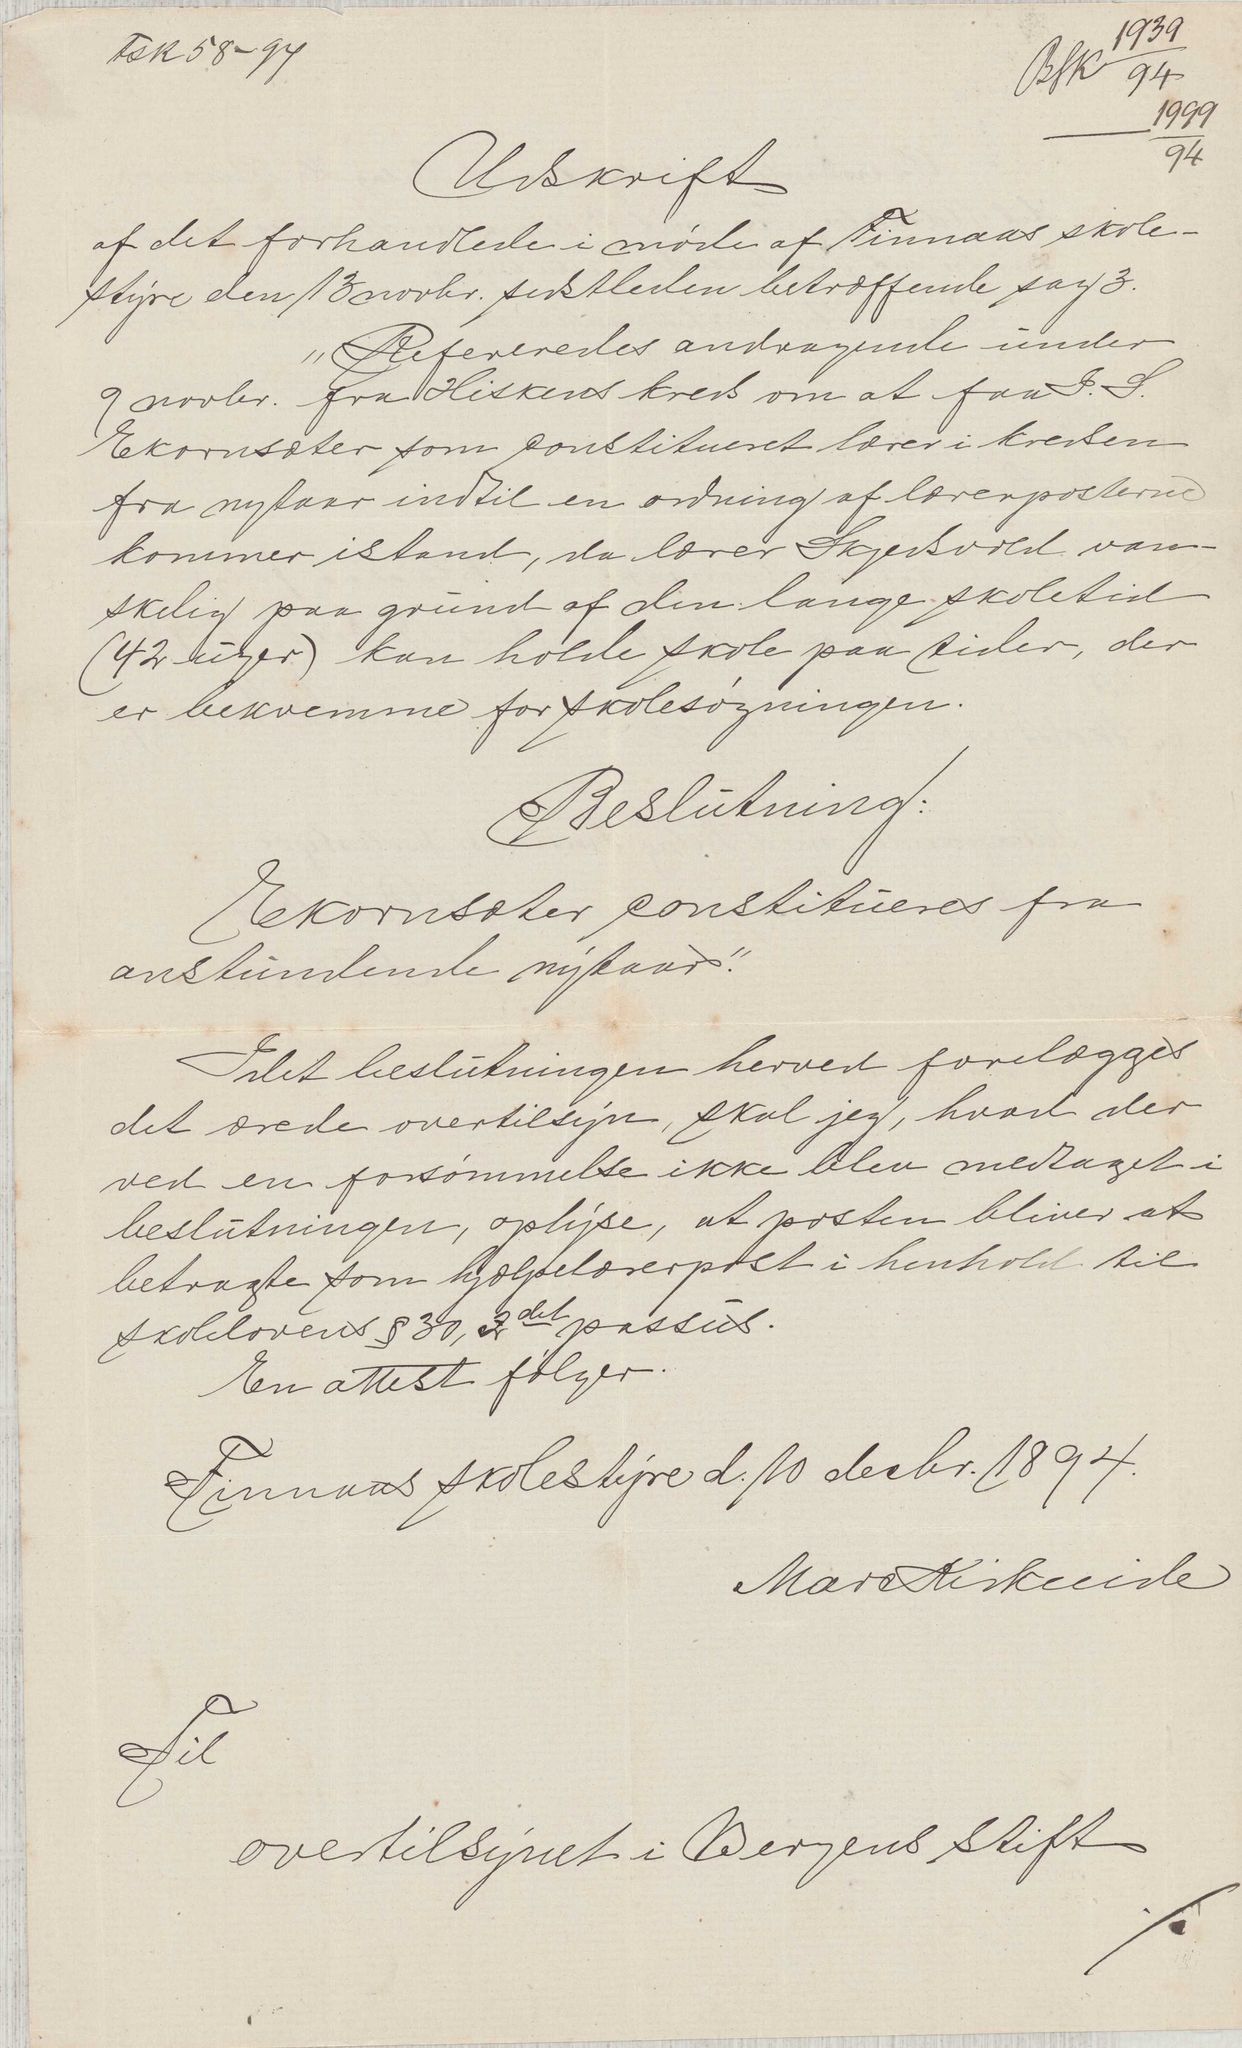 Fsk 58-94
Bfk 1939/94
— 1999/94
Udskrift
af det forhandlede i møde af Finnaas skole-
styre den 13 novbr. sidstleden betræffende sag 3.
"Refereredes andragende under
9 novbr. fra Hiskens kreds om at faa I. S.
Ekornsæter som constitueret lærer i kredsen
fra nytaar indtil en ordning af lærerposterne
kommer istand, da lærer Skjedsvold van-
skelig paa grund af den lange skoletid
(42 uger) kan holde skole paa tider, der
er bekvemme for skolesøgningen.
Beslutning:
Ekornsæter constitueres fra
anstundende nytaar".
Idet beslutningen herved forelægges
det ærede overtilsyn, skal jeg, hvad der
ved en forsømmelse ikke blev medtaget i
beslutningen, oplyse, at posten bliver at
betragte som hjælpelærerpost i henhold til
skolelovens § 30, 2det passus.
En attest følger.
Finnaas skolestyre d. 10 decbr. 1894.
Mar Kirkeeide
Til
overtilsynet i Bergens stift